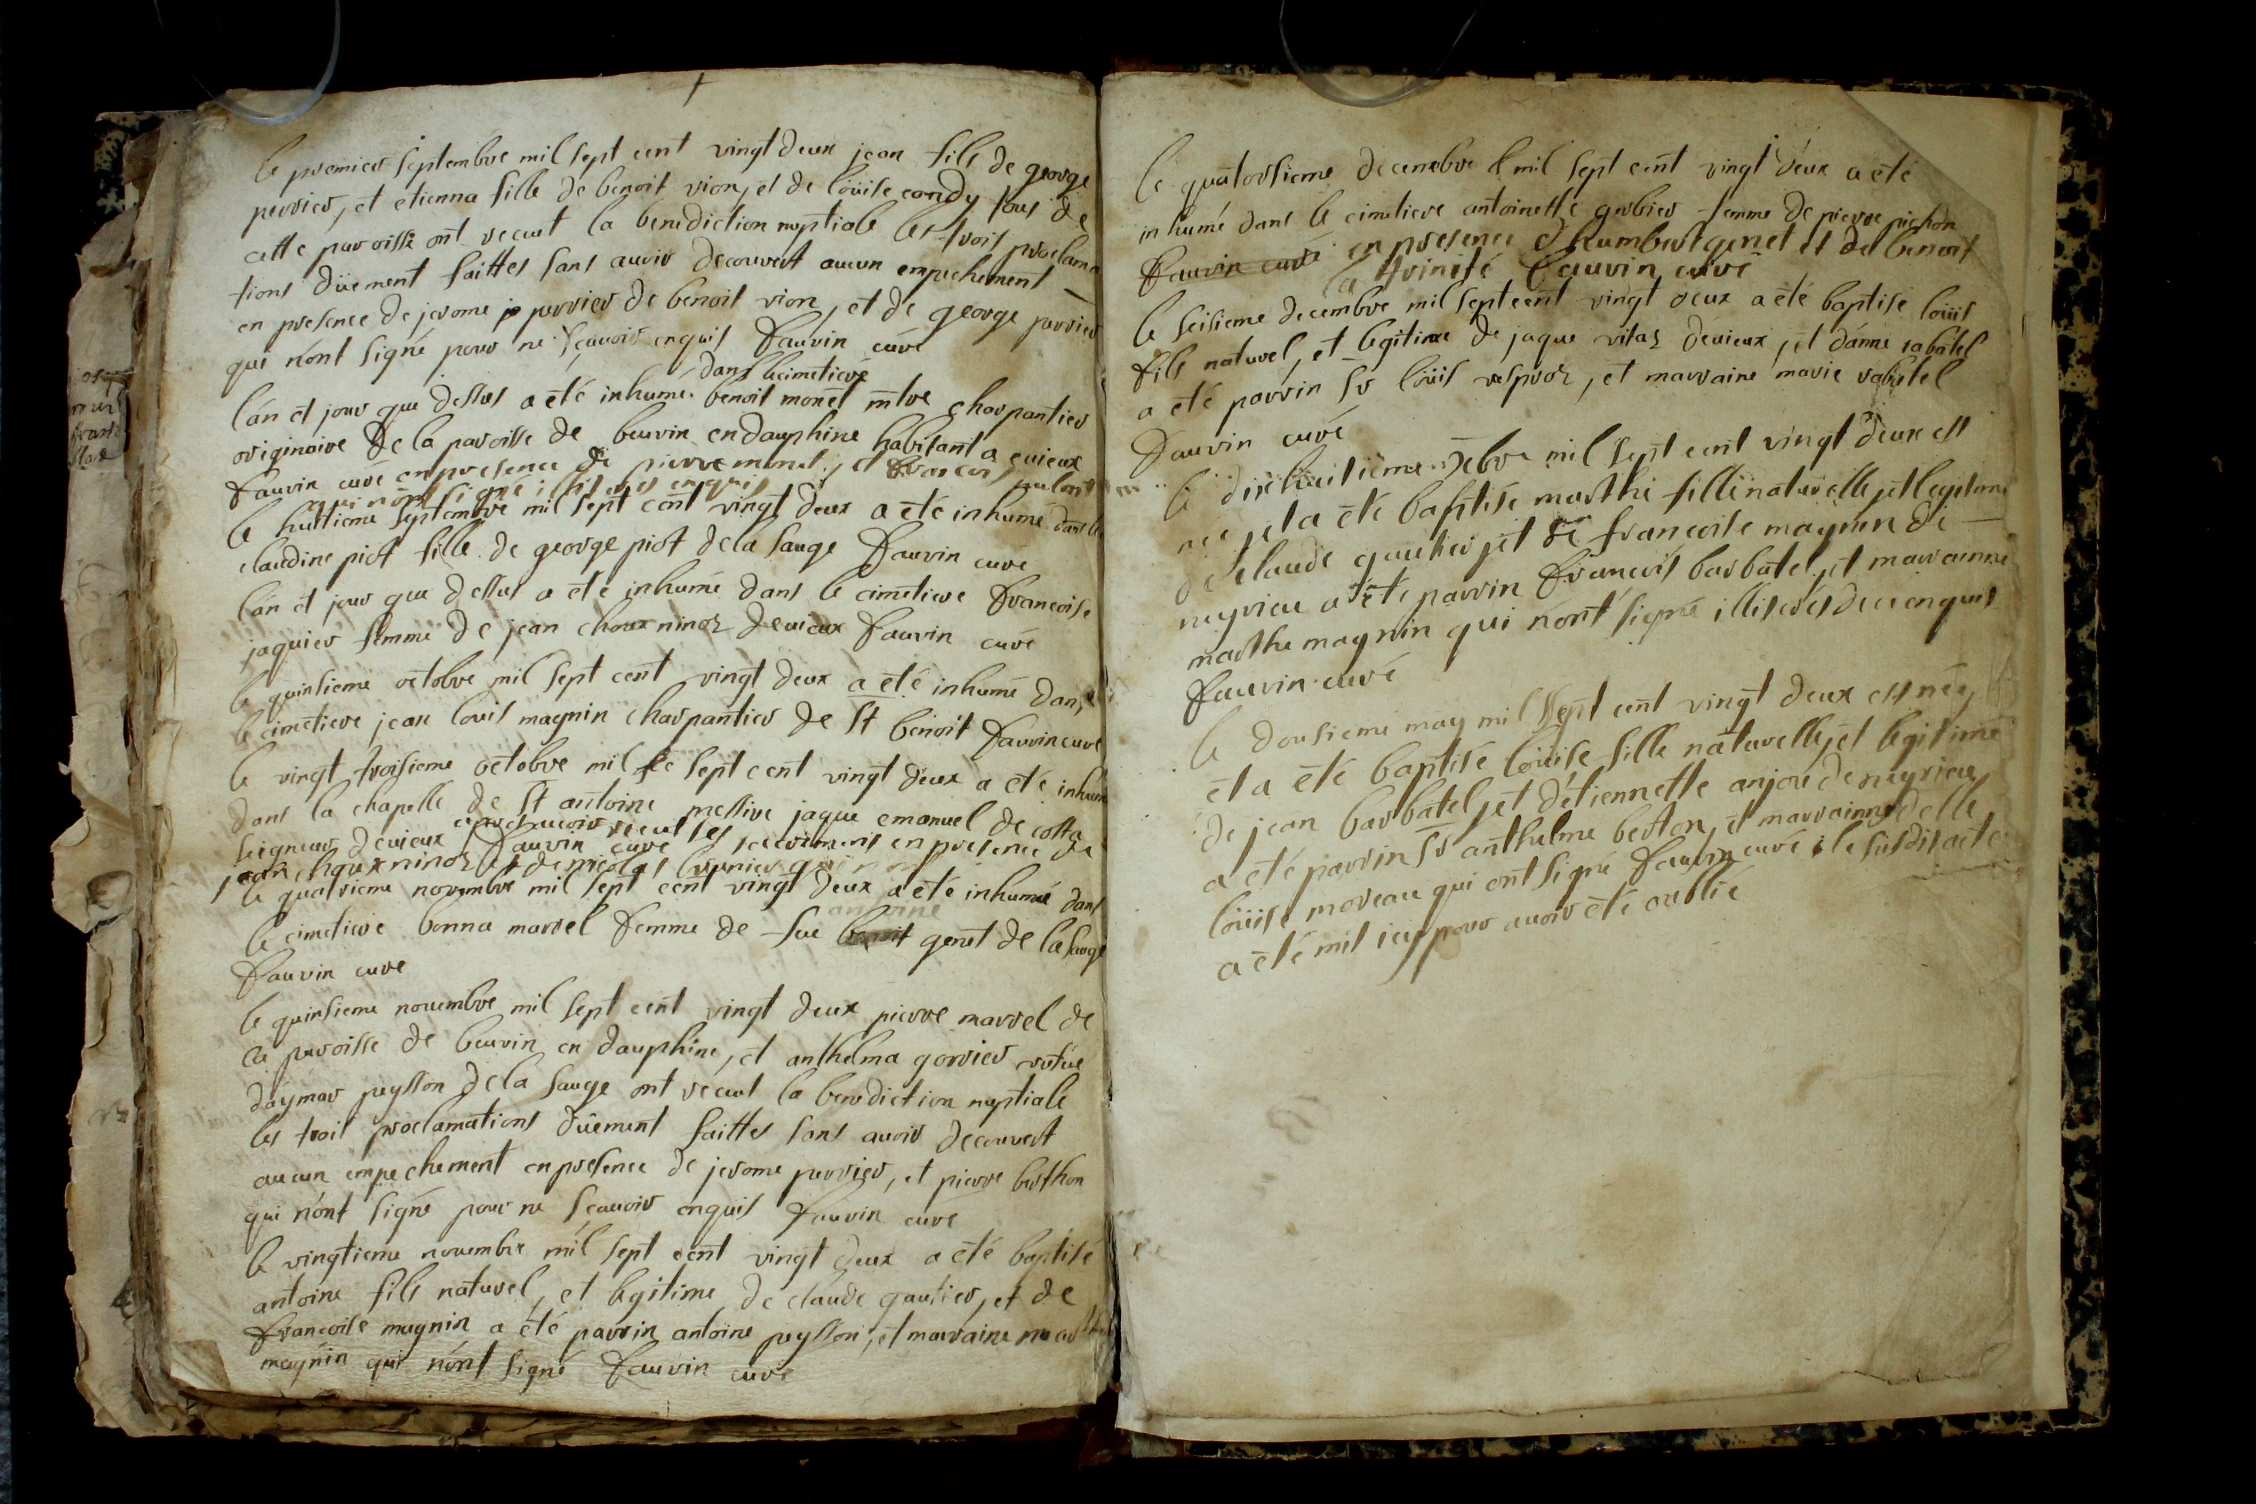 le premier septembre mil sept cent vingt deux jean fils de george
perrier, et etienna fille de benoit vion, et de loüise condy tous de
cette paroisse ont recut la benediction nuptiale les trois proclama
tions düement faittes sans auoir decouvert aucun empechement
en presence de jerome perrier de benoit vion, et de george perrier
qui n'ont signé pour ne sçauoir enquis fauvin curé
dans le cimetiere
l'an et jour que dessus a été inhumé benoit monet mtre charpantier
originaire de la paroisse de beuvin en dauphine habitant a euieux
fauvin curé en presence de pierre monet, et francois
qui nont signé illiteres enquis
le huitieme septembre mil sept cent vingt deux a été inhumé dans le
claudine piot fille de george piot de la sauge fauvin curé
l'an et jour que dessus a été inhumé dans le cimetiere francoise
jaquier femme de jean chouxninoz deuieux fauvin curé
le quinsieme octobre mil sept cent vingt deux a été inhumé dans
le cimetiere jean louis magnin charpantier de St benoit fauvin curé
le vingt troisieme octobre mil sept cent vingt deux a été inhumé
dans la chapelle de St antoine messire jaque emanuel de costa
seigneur deuieux apres auoir recut ses sacrements en presence de
fauvin curé
jean chouxninoz et de nicolas
le quatrieme novembre mil sept cent vingt deux a été inhumé dans
antoine
le cimetiere bonna marrel femme de fut benoit genet de la sauge
fauvin curé
le quinsieme nouembre mil sept cent vingt deux pierre marrel de
la paroisse de beuvin en dauphine, et anthelma gorrier
d'aymar peysson de la sauge ont recut la benediction nuptiale
les trois proclamations düement faittes sans auoir decouvert
aucun empechement en presence de jerome perrier, et pierre berthon
qui n'ont signé pour ne sçauoir enquis fauvin curé
le vingtieme nouembre mil sept cent vingt deux a été baptisé
antoine fils naturel, et legitime de claude gautier, et de
francoise magnin a été parrin antoine peysson, et marraine marthe
magnin qui n'ont signé fauvin curé
le quatorsieme decembre mil sept cent vingt deux a été
inhumé dans le cimetiere antoinette gerbier femme de pierre pichon
fauvin curé en presence d'humbert genet et de benoit
la trinité fauvin curé
le seisieme decembre mil sept cent vingt deux a été baptisé loüis
fils naturel, et legitime de jaque vitaz deuieux, et d'anne rabatel
a été parrin Sr loüis vesproz, et marraine marie rabatel
fauvin curé
le dixhuitieme xebre mil sept cent vingt deux est
née, et a été baptisé marthe fille naturelle, et legitime
de claude gautier, et de francoise magnin de
neyrieu a été parrin francois barbatel, et marrainne
marthe magnin qui n'ont signé illiteres de ce enquis
fauvin curé
le dousieme may mil sept cent vingt deux est née
et a été baptisé loüise fille naturelle, et legitime
de jean barbatel, et d'étiennette anjou de neyrieu
a été parrin Sr anthelme berton, et marrainne delle
loüise moreau qui ont signé fauvin curé le susdit acte
a été mit icy pour auoir été oublié